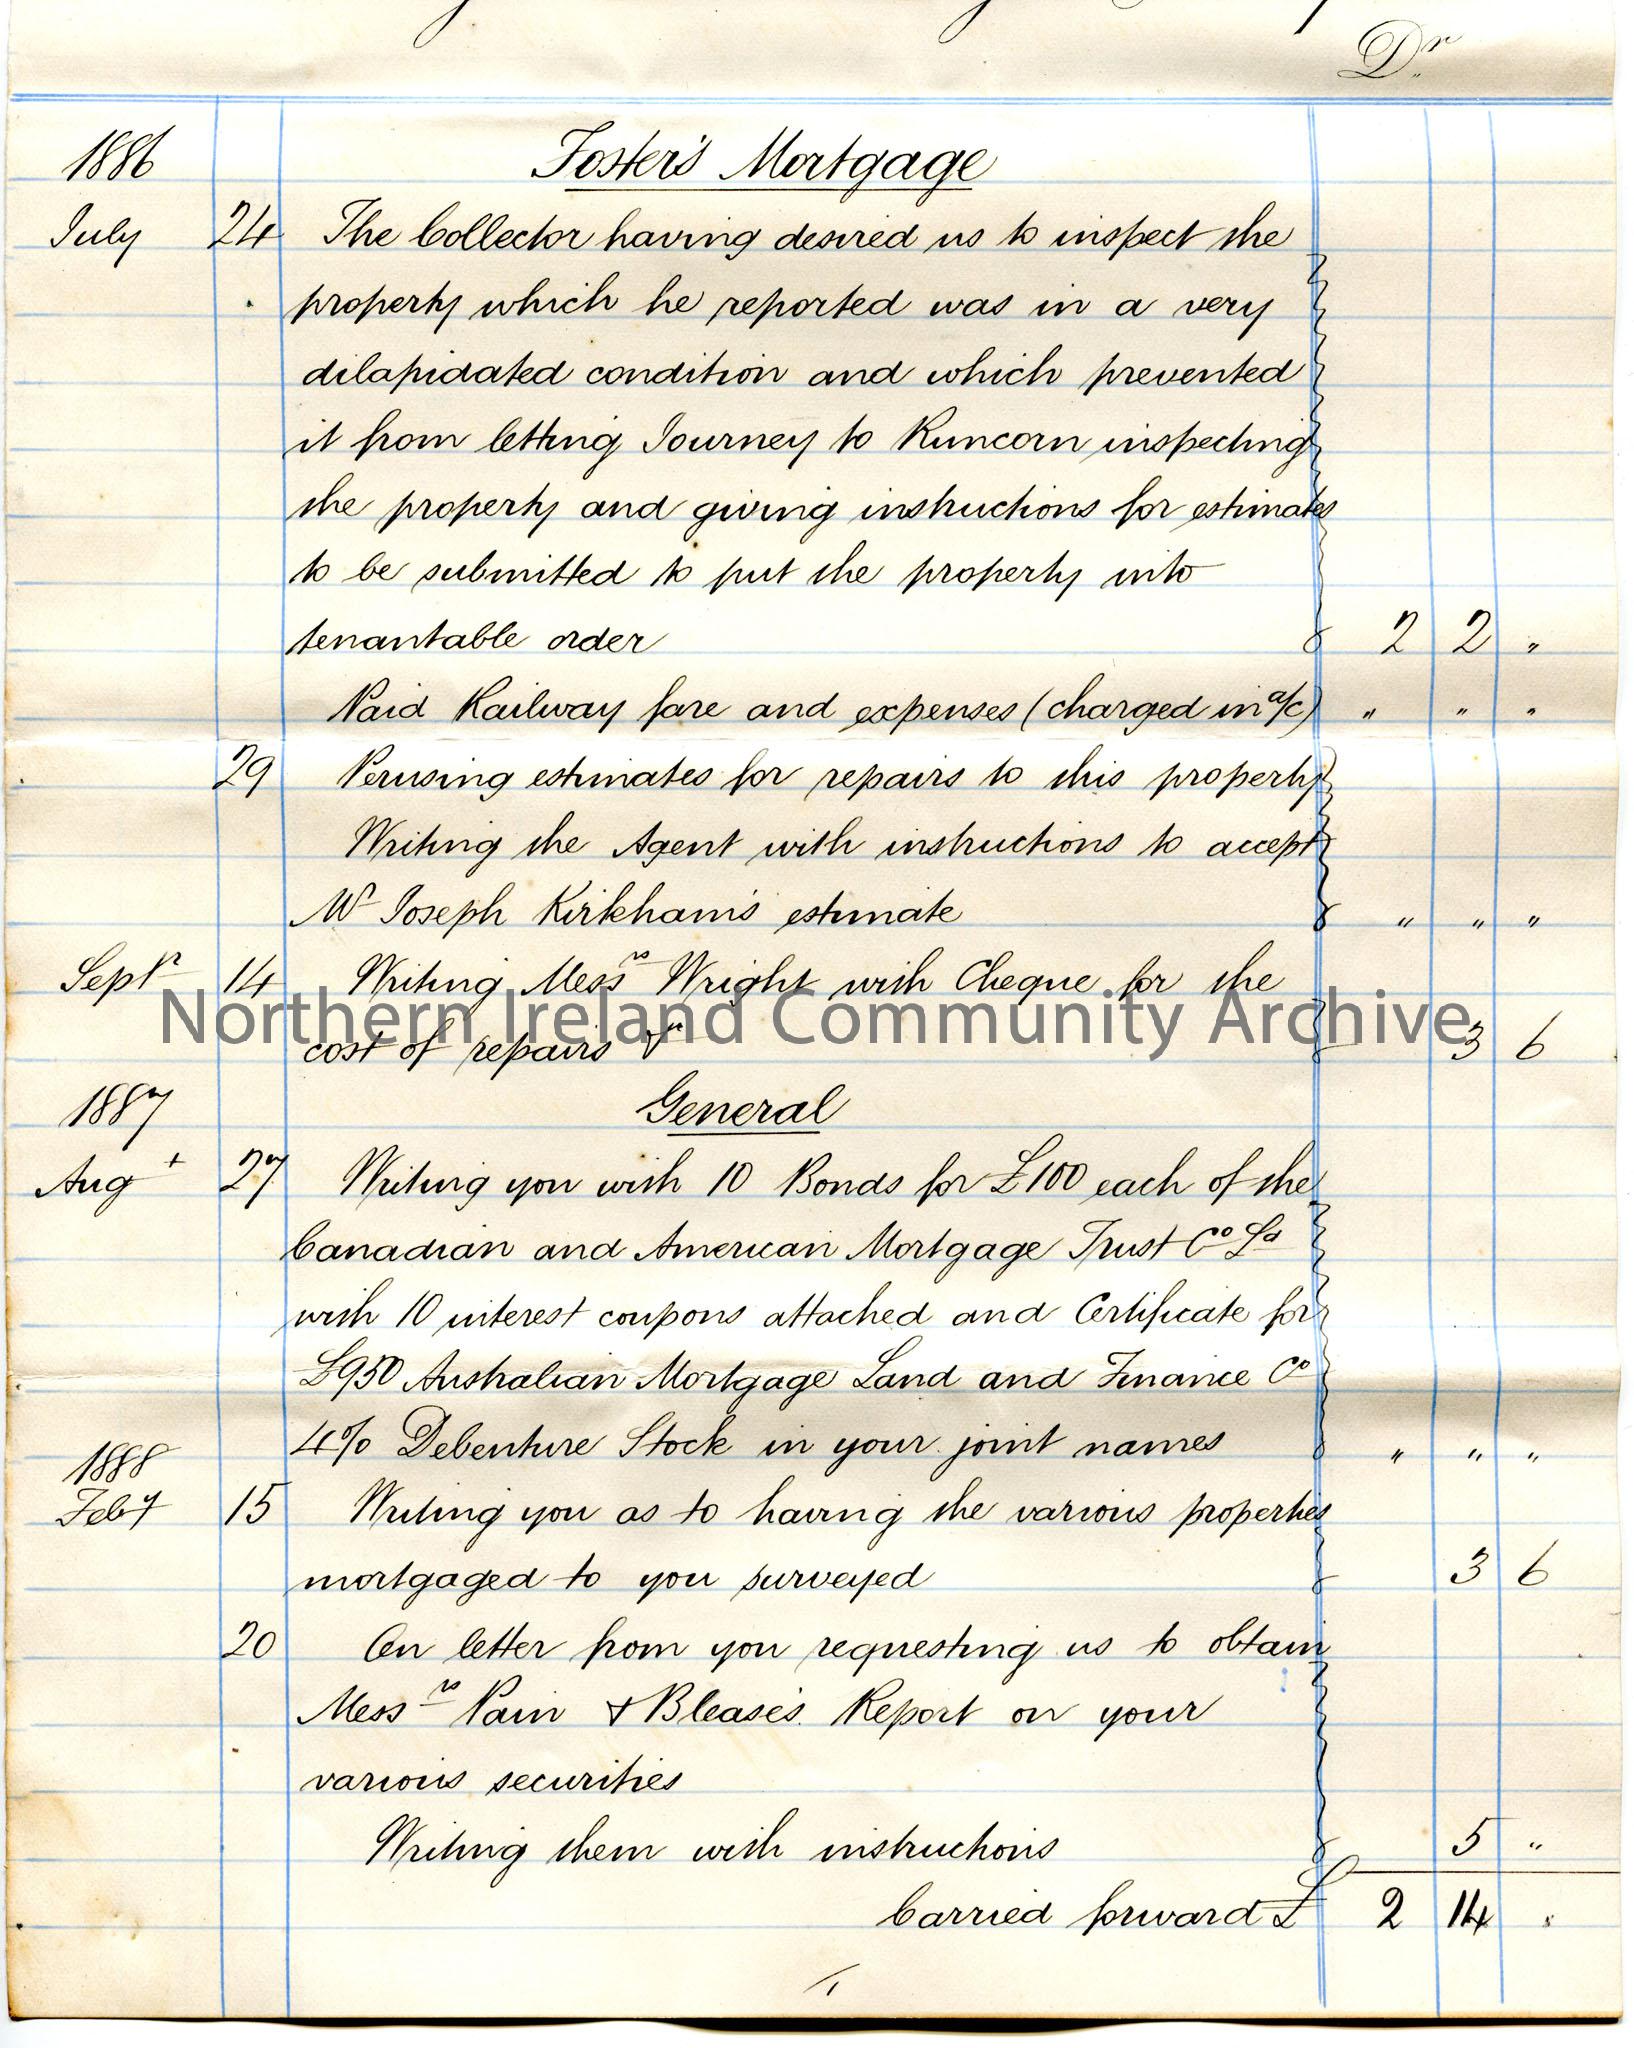 Dr
1886 Foster's Mortgage
July 24 The Collector having desired us to inspect the
property which he reported was in a very
dilapidated condition and which prevented
it from letting Journey to Runcorn inspecting
the property and giving instructions for estimates
to be submitted to put the property into
tenantable order 2 2 "
Paid Railway fare and expenses (charged in a/c) " " "
29 Perusing estimates for repairs to this property
Writing the Agent with instructions to accept
Mr Joseph Kirkham's estimate " " "
Septr 14 Writing Messrs Wright with Cheque for the
Northern Ireland Community Archive
cost of repairs &c 3 6
1887 General
Augt 27 Writing you with 10 Bonds for £100 each of the
Canadian and American Mortgage Trust Co Ld
with 10 interest coupons attached and Certificate for
£950 Australian Mortgage Land and Finance Co
4% Debenture Stock in your joint names " " "
1888
Feby 15 Writing you as to having the various properties
mortgaged to you surveyed 3 6
20 On letter from you requesting us to obtain
Messrs Pain & Blease's Report on your
various securities
Writing them with instructions 5 "
Carried forward £ 2 14 "